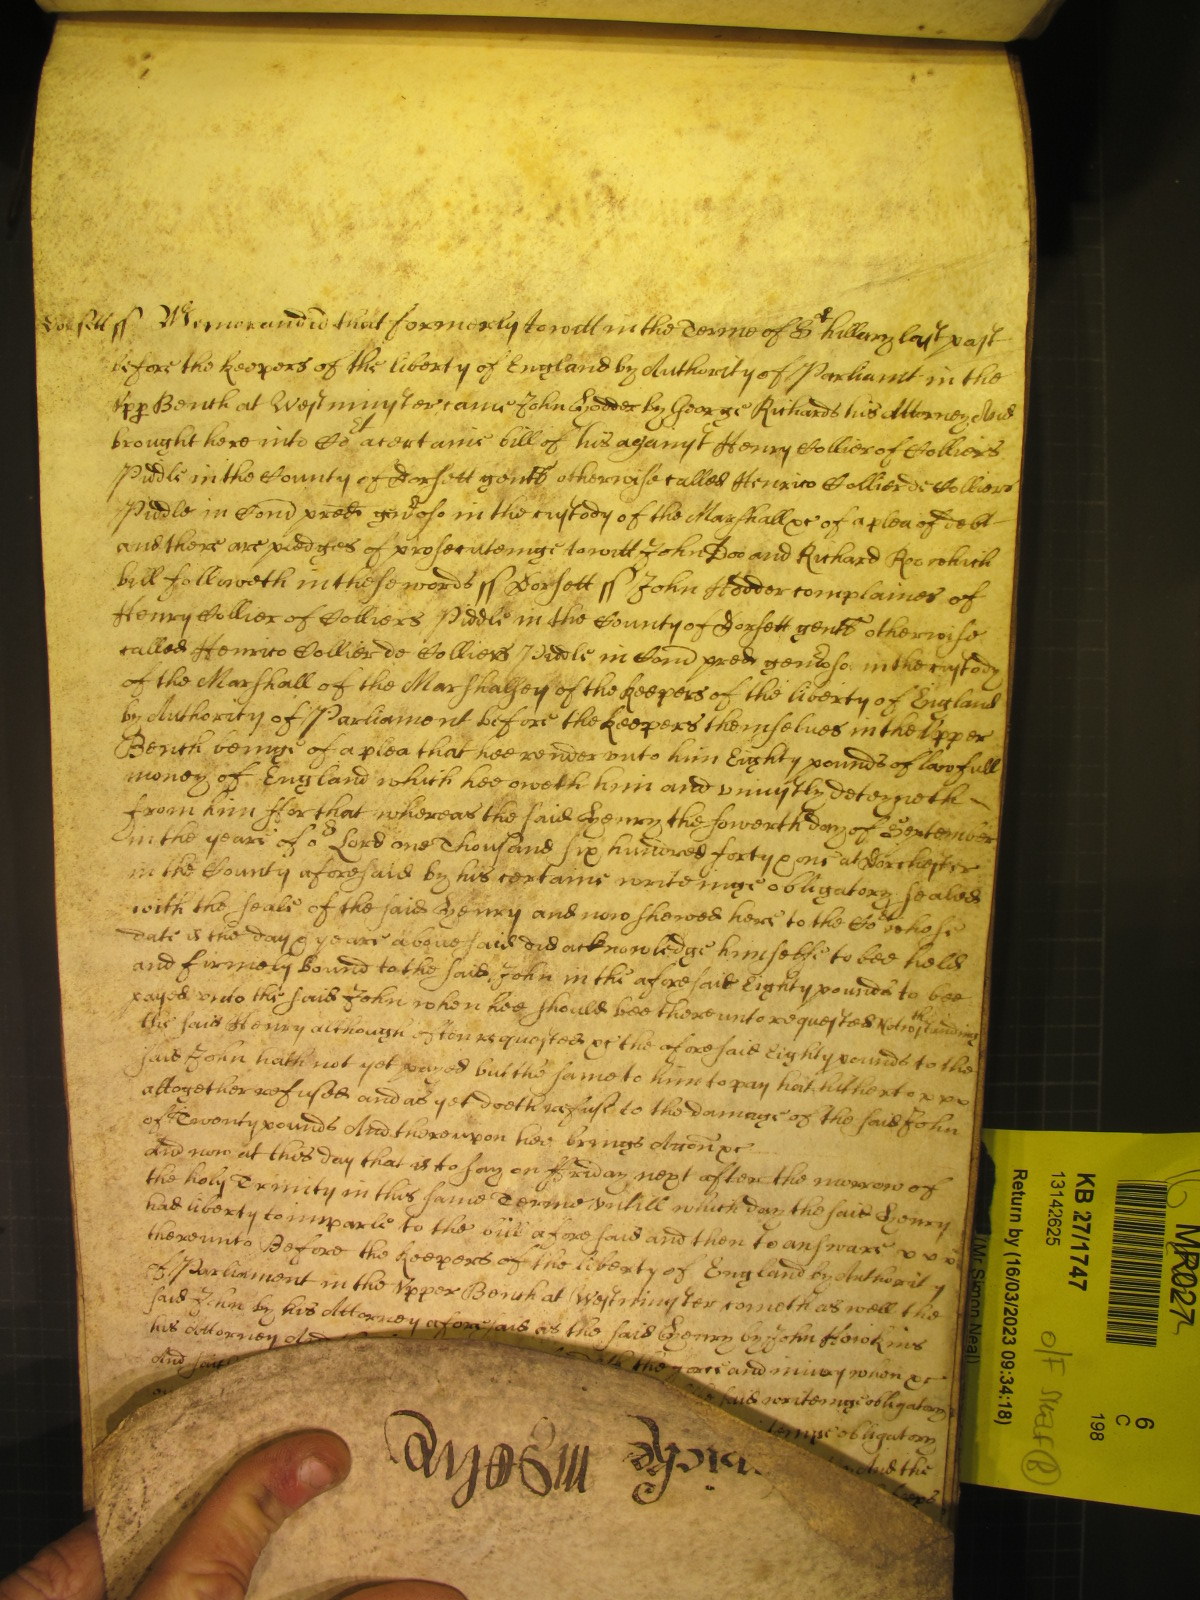 Dorsett ss Memorandu that formerly to witt in the Terme of St hillary last past
before the keepers of the liberty of England by Authority of Parliamt in the
Upp Bench at Westmynster came John Hodder by George Richards his Attorney And
brought here into Cot a certaine bill of his agaynst Henry Collier of Colliers
Piddle in the County of Dorsett gent otherwise called Henrico Collier de Colliers
Piddle in Com pred genoso in the custody of the Marshall &c of a plea of debt
and there are pledges of prosecuteinge to witt John Doo and Richard Roo which
bill followeth in these words ss Dorsett ss John Hodder complaines of
Henry Collier of Colliers Piddle in the County of Dorsett gent otherwise
called Henrico Collier de Colliers Piddle in Com pred genoso in the custody
of the Marshall of the Marshalsey of the keepers of the liberty of England
by Authority of Parliament before the keepers themselves in the Upper
Bench beinge of a plea that hee render unto him Eighty pounds of lawfull
money of England which hee oweth him and uniustly deteyneth
from him ffor that whereas the said Henry the fowerth day of September
in the yeare of or Lord one Thousand six hundred forty & one at Dorchester
in the County aforesaid by his certaine writeinge obligatory sealed
with the seale of the said Henry and now shewed here to the Cot whose
date is the day & yeare abovesaid did acknowledge himselfe to bee held
and firmely bound to the said John in the aforesaid Eighty pounds to bee
payed unto the said John when hee should bee thereunto requested Notwthstanding
the said Henry although often requested &c the aforesaid Eighty pounds to the
said John hath not yet payed but the same to him to pay hath hitherto
altogether refused and as yet doeth refuse to the damage of the said John
of Twenty pounds And thereupon hee brings &c
And now at this day that is to say on ffriday next after the morrow of
the holy Trinity in this same Terme untill which day the said Henry
had liberty to imparle to the bill aforesaid and then to answare
thereunto Before the keepers of the liberty of England by Authority
of Parliament in the Upper Bench at Westmynster cometh as well the
said John by his Attorney aforesaid as the said Henry by John Hawkins
his Attorney And the force and iniury when &c
And said writeinge obligatory
obligatory
And the
MR027
6
C
198
KB 27/1747
13142625
Return by (16/03/2023 09:34:18)
(Mr Simon Neal)